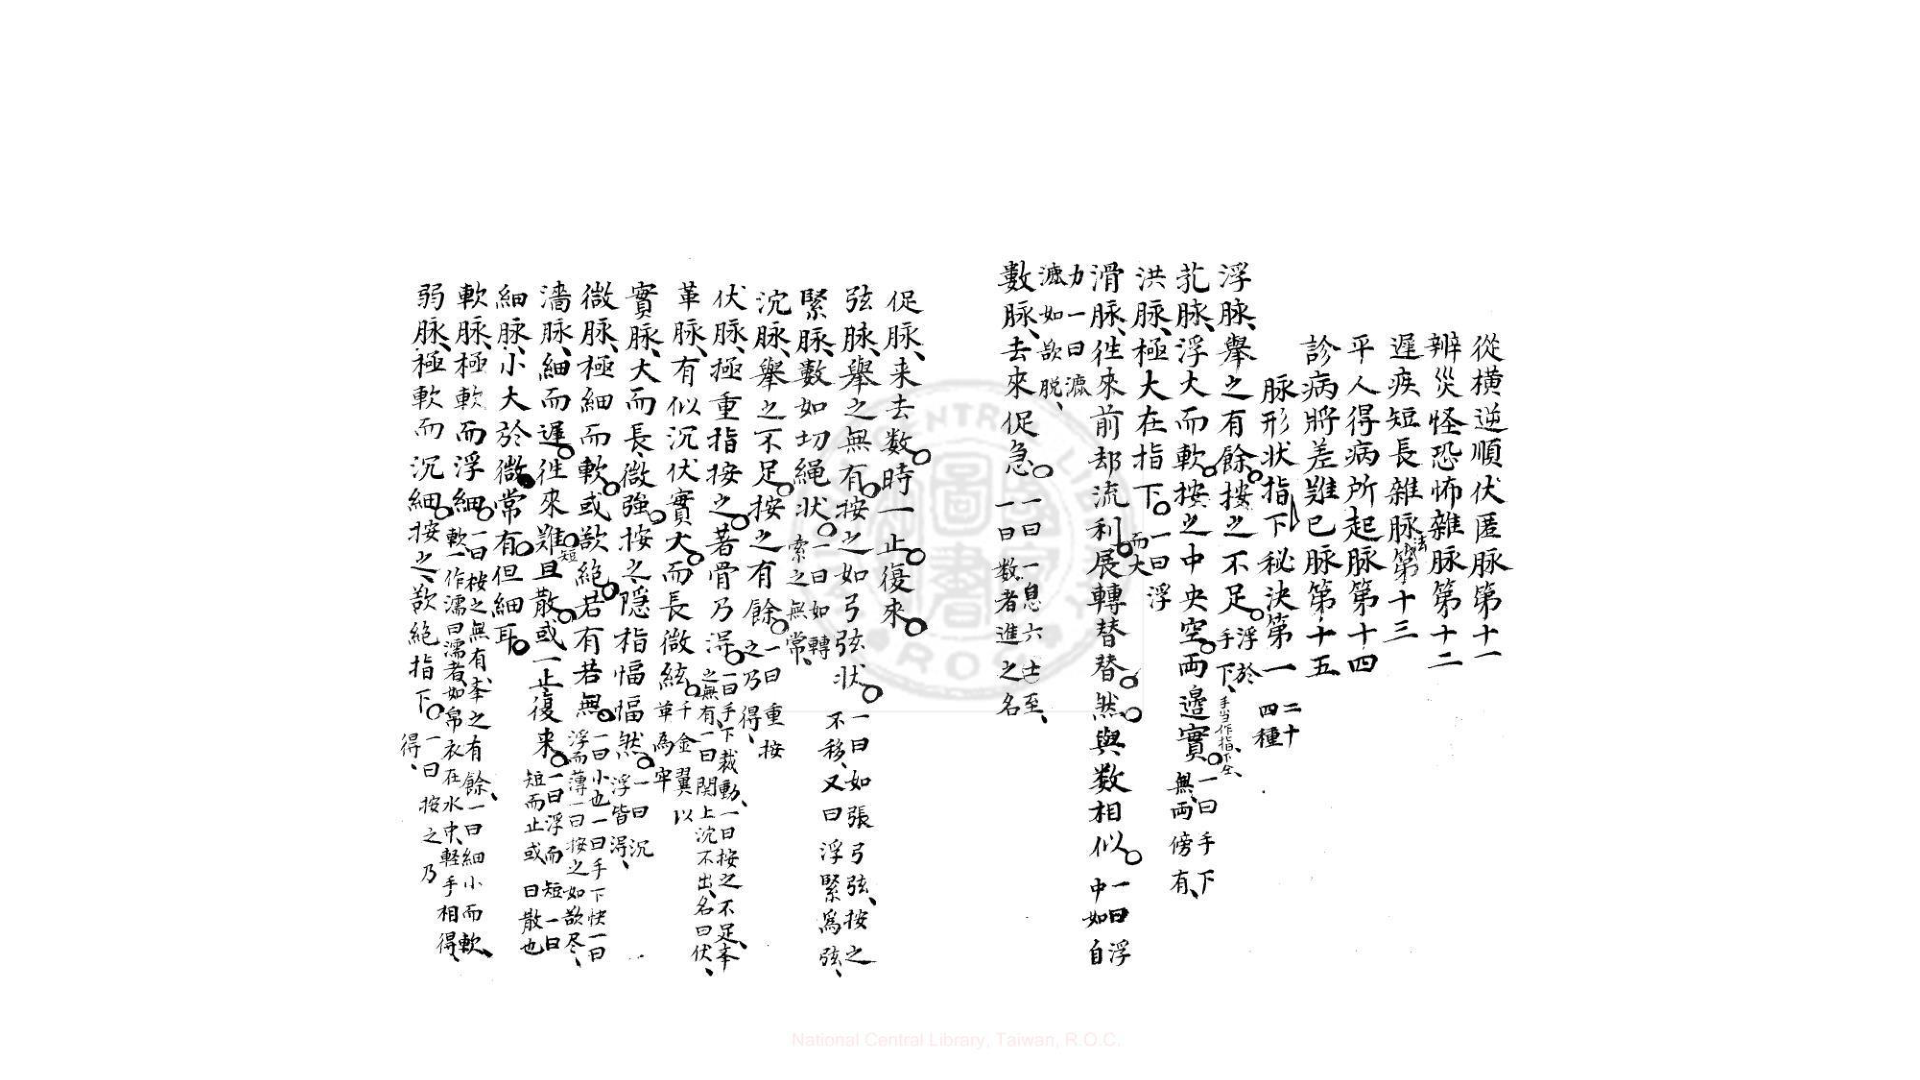 從橫逆順伏匿脉第十一
辨災怪恐怖雜脉第十二
遲疾短長雜脉法第十三
平人得病所起脉第十四
診病將差難已脉第十五
脉形状指下秘決第一 二十四種
浮脉、舉之有餘按之不足 浮於手下、手当作指下仝、
芤脉、浮大而軟按之中央空両邉實 一曰手下無、両傍有、
洪脉、極大在指下 一曰浮而大
滑脉、徃來前却流利展轉替替然與数相似 一曰浮中如自
力一曰漉漉如欲脱、
數脉、去來促急 一曰一息六七至、一曰数者進之名
促脉、来去数時一止復來
弦脉、舉之無有按之如弓弦状 一曰如張弓弦、按之不移、又曰浮緊爲弦、
緊脉、數如切繩状 一曰如轉索之無常、
沉脉、舉之不足按之有餘 一曰重按之乃得、
伏脉、極重指按之著骨乃得 一曰手下裁動、一曰按之不足、本之無有、一曰関上沈不出、名曰伏、
革脉、有似沉伏實大而長微絃 千金翼以革為牢
實脉、大而長、微強按之隱指愊愊然 一曰沉浮皆得、
微脉、極細而軟或欲絶若有若無 一曰小也一曰手下快一曰浮而薄一曰按之如欲尽、
濇脉、細而遲徃來難短且散或一止復来 一曰浮而短一曰短而止或曰散也
細脉、小大於微常有但細耳
軟脉、極軟而浮細 一曰按之無有、本之有餘、一曰細小而軟、軟一作濡曰濡者、如帛衣在水中、輕手相得、
弱脉、極軟而沉細按之、欲絶指下 一曰按之乃得、
National Central Library, Taiwan, R.O.C.